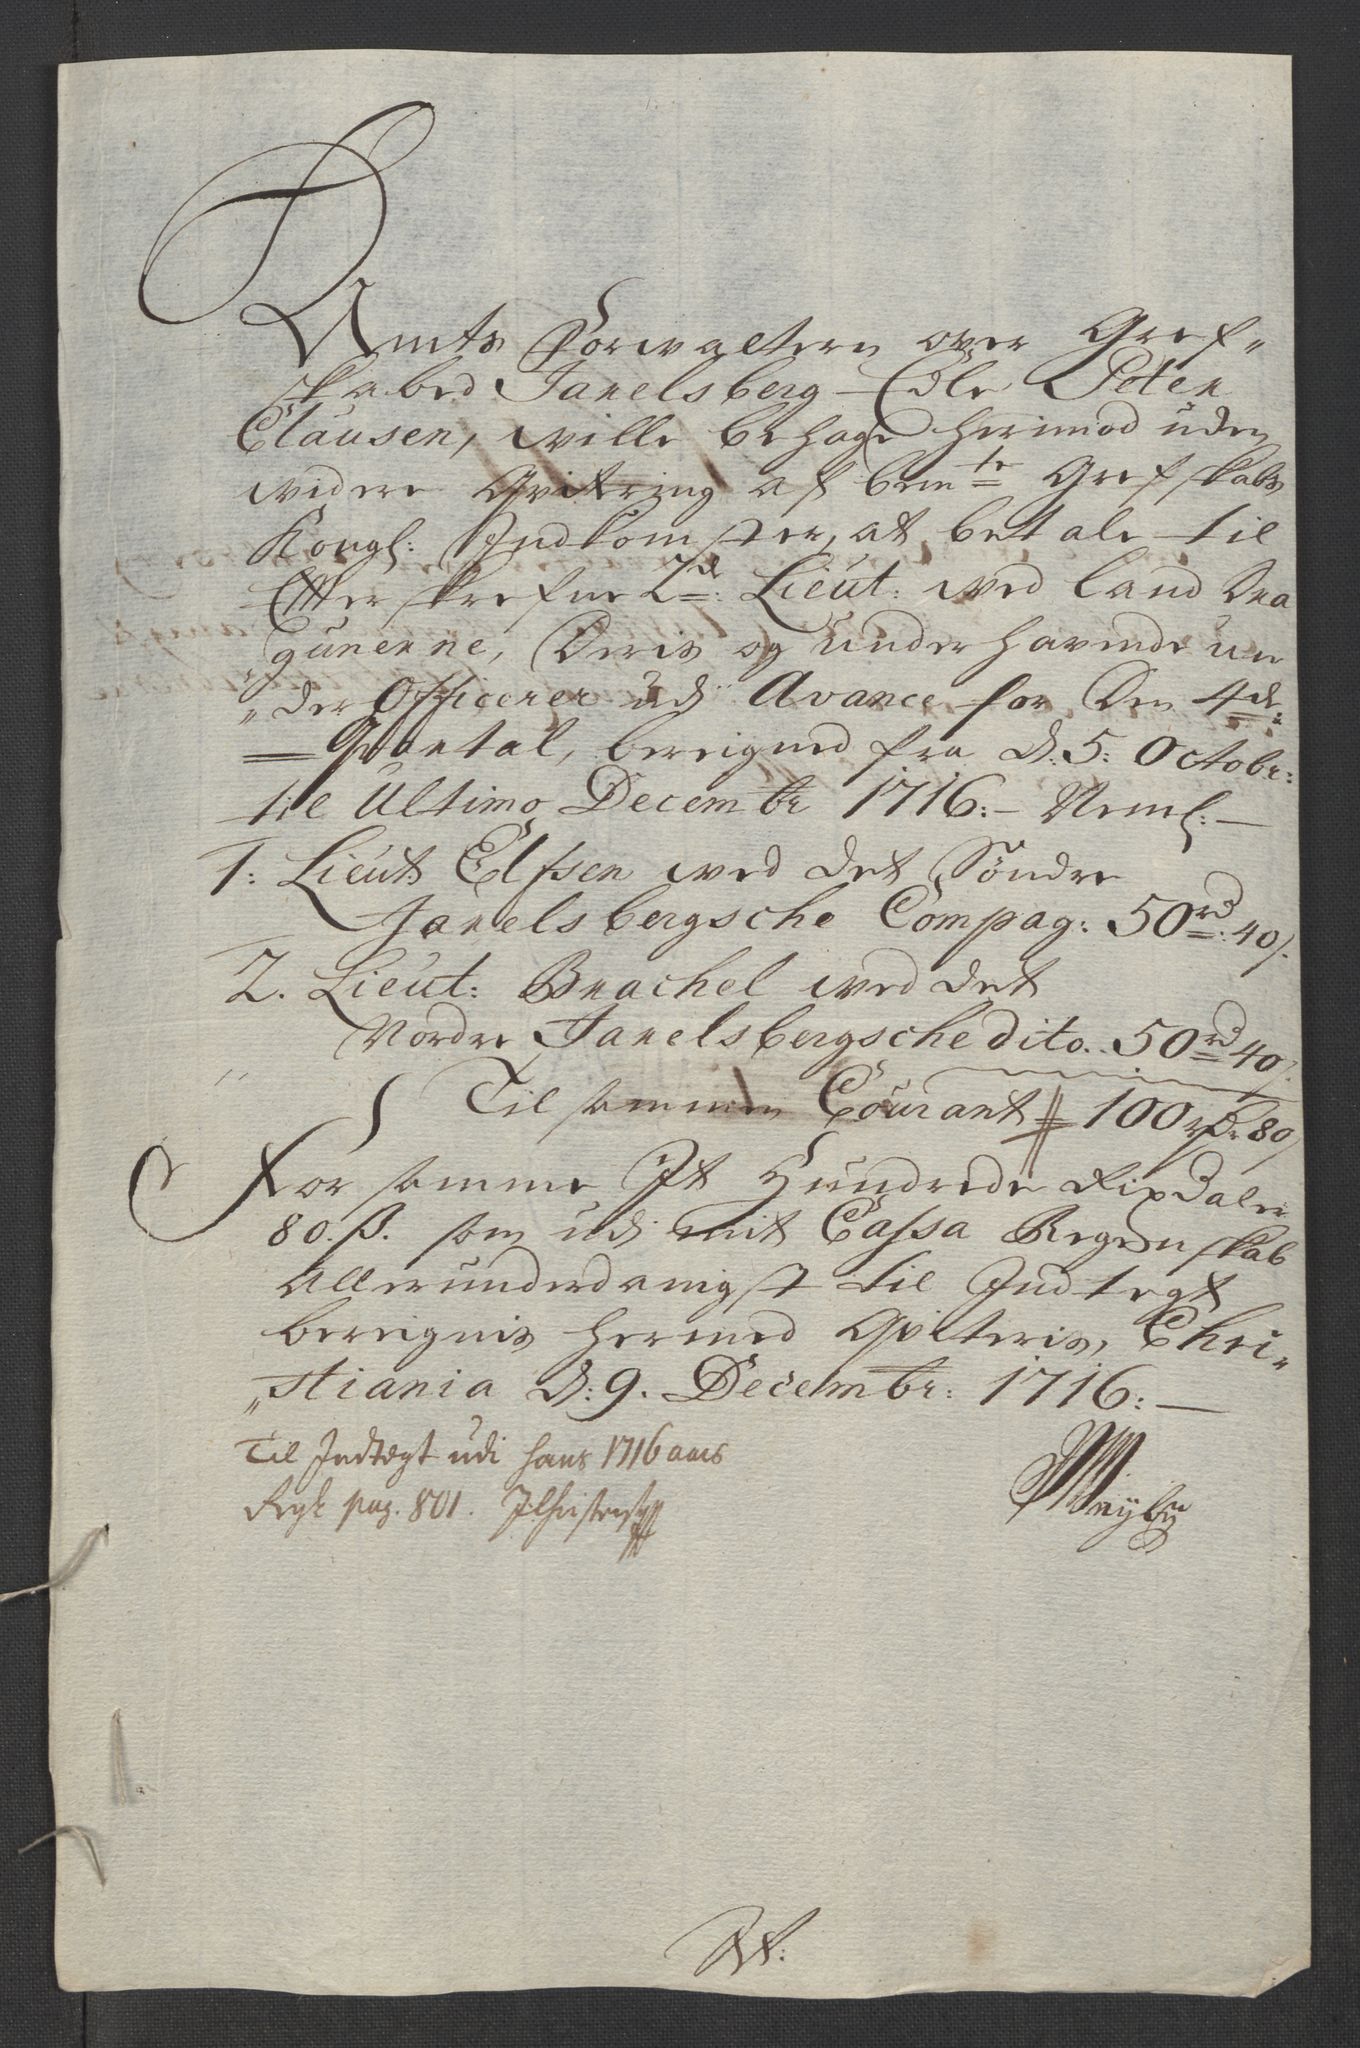 Amts Forwaltern over Gref-
skabed Jarelsberg Edle Peter
Clausen, wille behage herimod uden
widere Qvitering af bem:te Grefskabs
Kongl: Indkomster, at betale til
Effterskrefne 2de: Lieut: wed land Dra
"gunerne, Deris og underhavende un
"der Officerer udj Avance for Den 4de:
Qvartal, bereigned fra d: 5: Octobr:
til Ultimo Decembr 1716:- Neml:-
1: Lieut: Elfsen wed det Søndre
Jarelsbergsche Compag: 50rd: 40s.
2. Lieut: Brachel wed det
Nordre Jarelsbergsche dito. 50rd 40s.
Til sammen Courant 100rdr: 80s
For samme Et Hundrede Rixdaler
80. ß. som udi mit Cassa Regenskab
Allerunderdanigst til Indtegt
bereignis hermed Qviteris, Chri-
"stiania d: 9. Decembr: 1716:-
Til Indtegt udi hans 1716 aars
Regsk pag. 801.